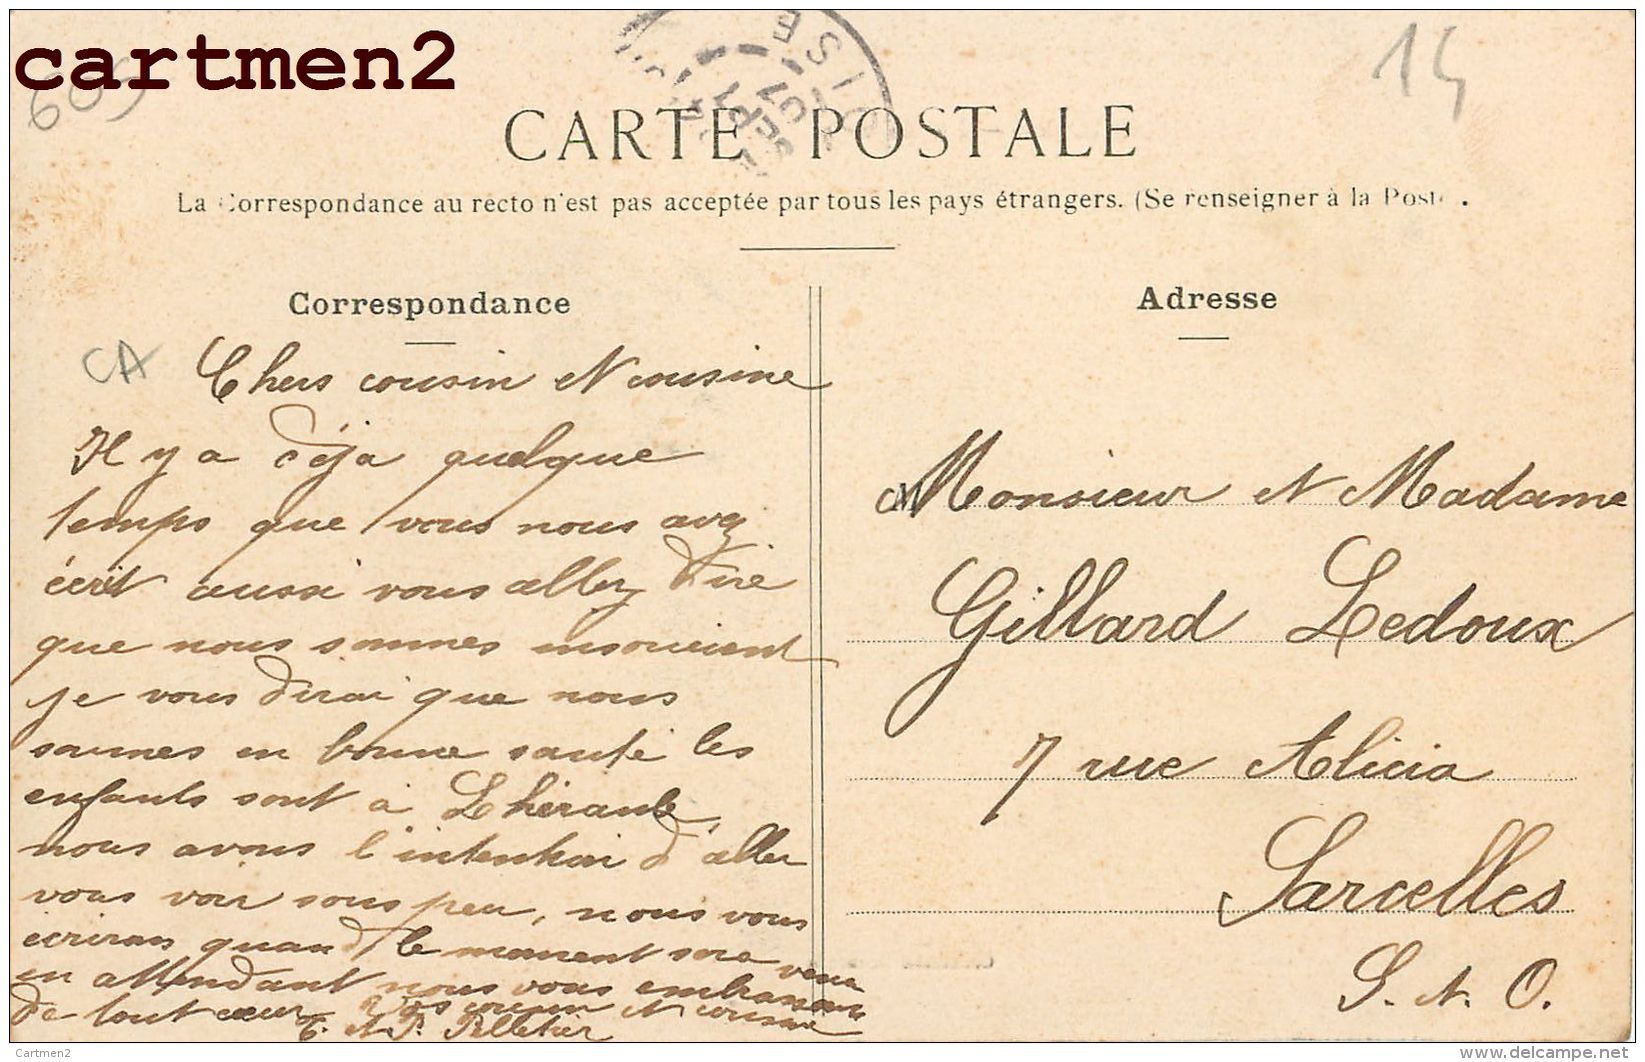 cartmen2
609
14
ISE
07
CARTE POSTALE
La Correspondance au recto n'est pas acceptée par tous les pays étrangers. (Se renseigner à la Poste.
Correspondance
CA
Chers cousin et cousine
Il y a déja quelque
temps que vous nous avez
écrit aussi vous allez dire
que nous sommes insouciant
je vous dirai que nous
sommes en bonne santé les
enfants sont à Lhéraule,
nous avons l'intention d'aller
vous voir sous peu, nous vous
écrirons quand le moment sera venu
en attendant nous vous embrassons
de tout cœur Vos cousin et cousine
C. et P. Pelletier
Adresse
Monsieur et Madame
Gillard Ledoux
7 rue Alicia
Sarcelles
S. et. O.
Cartmen2
www.delcampe.net